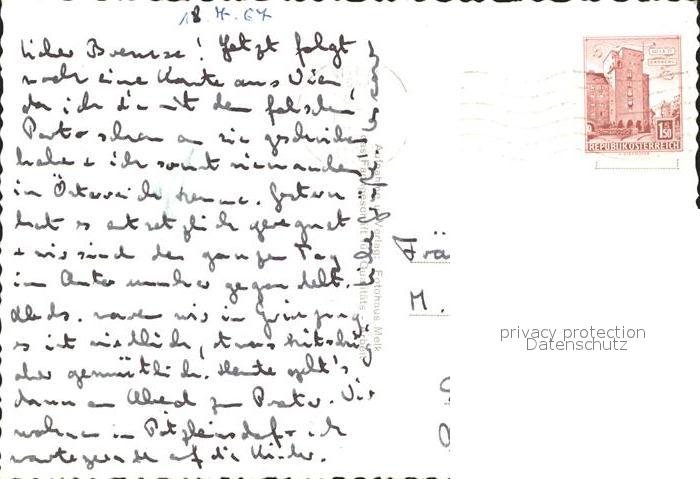 18.4.67
Lieber Bremse! Jetzt folgt
noch eine Karte aus Wien,
da ich die mit dem falschen
Porto schon an sie geschrieben
habe + ich sonst niemanden
in Österreich kenne. Gestern
hat es entsetzlich geregnet
+ wir sind den ganzen Tag
im Auto umher gegondelt.
Abds. waren wir in Grinzing,
es ist niedlich, etwas kitschig
aber gemütlich. Heute geht's
dann am Abend zum Prater. Wir
wohnen in Pötzleinsdorf + ich
warte gerade auf die Kinder.
Fotohaus Melk
Frä
M.
REPUBLIK ÖSTERREICH
1.50
privacy protection
Datenschutz